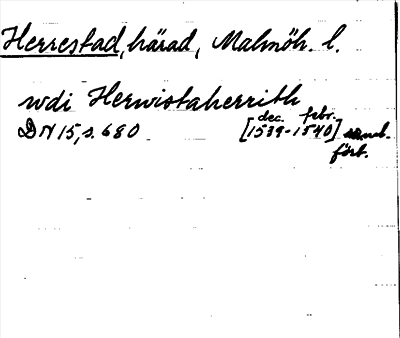 Herrestad, härad, Malmöh. l.
wdi Herwistaherrith
dec. febr.
DN 15, s. 680 [1539-1540]
fört.